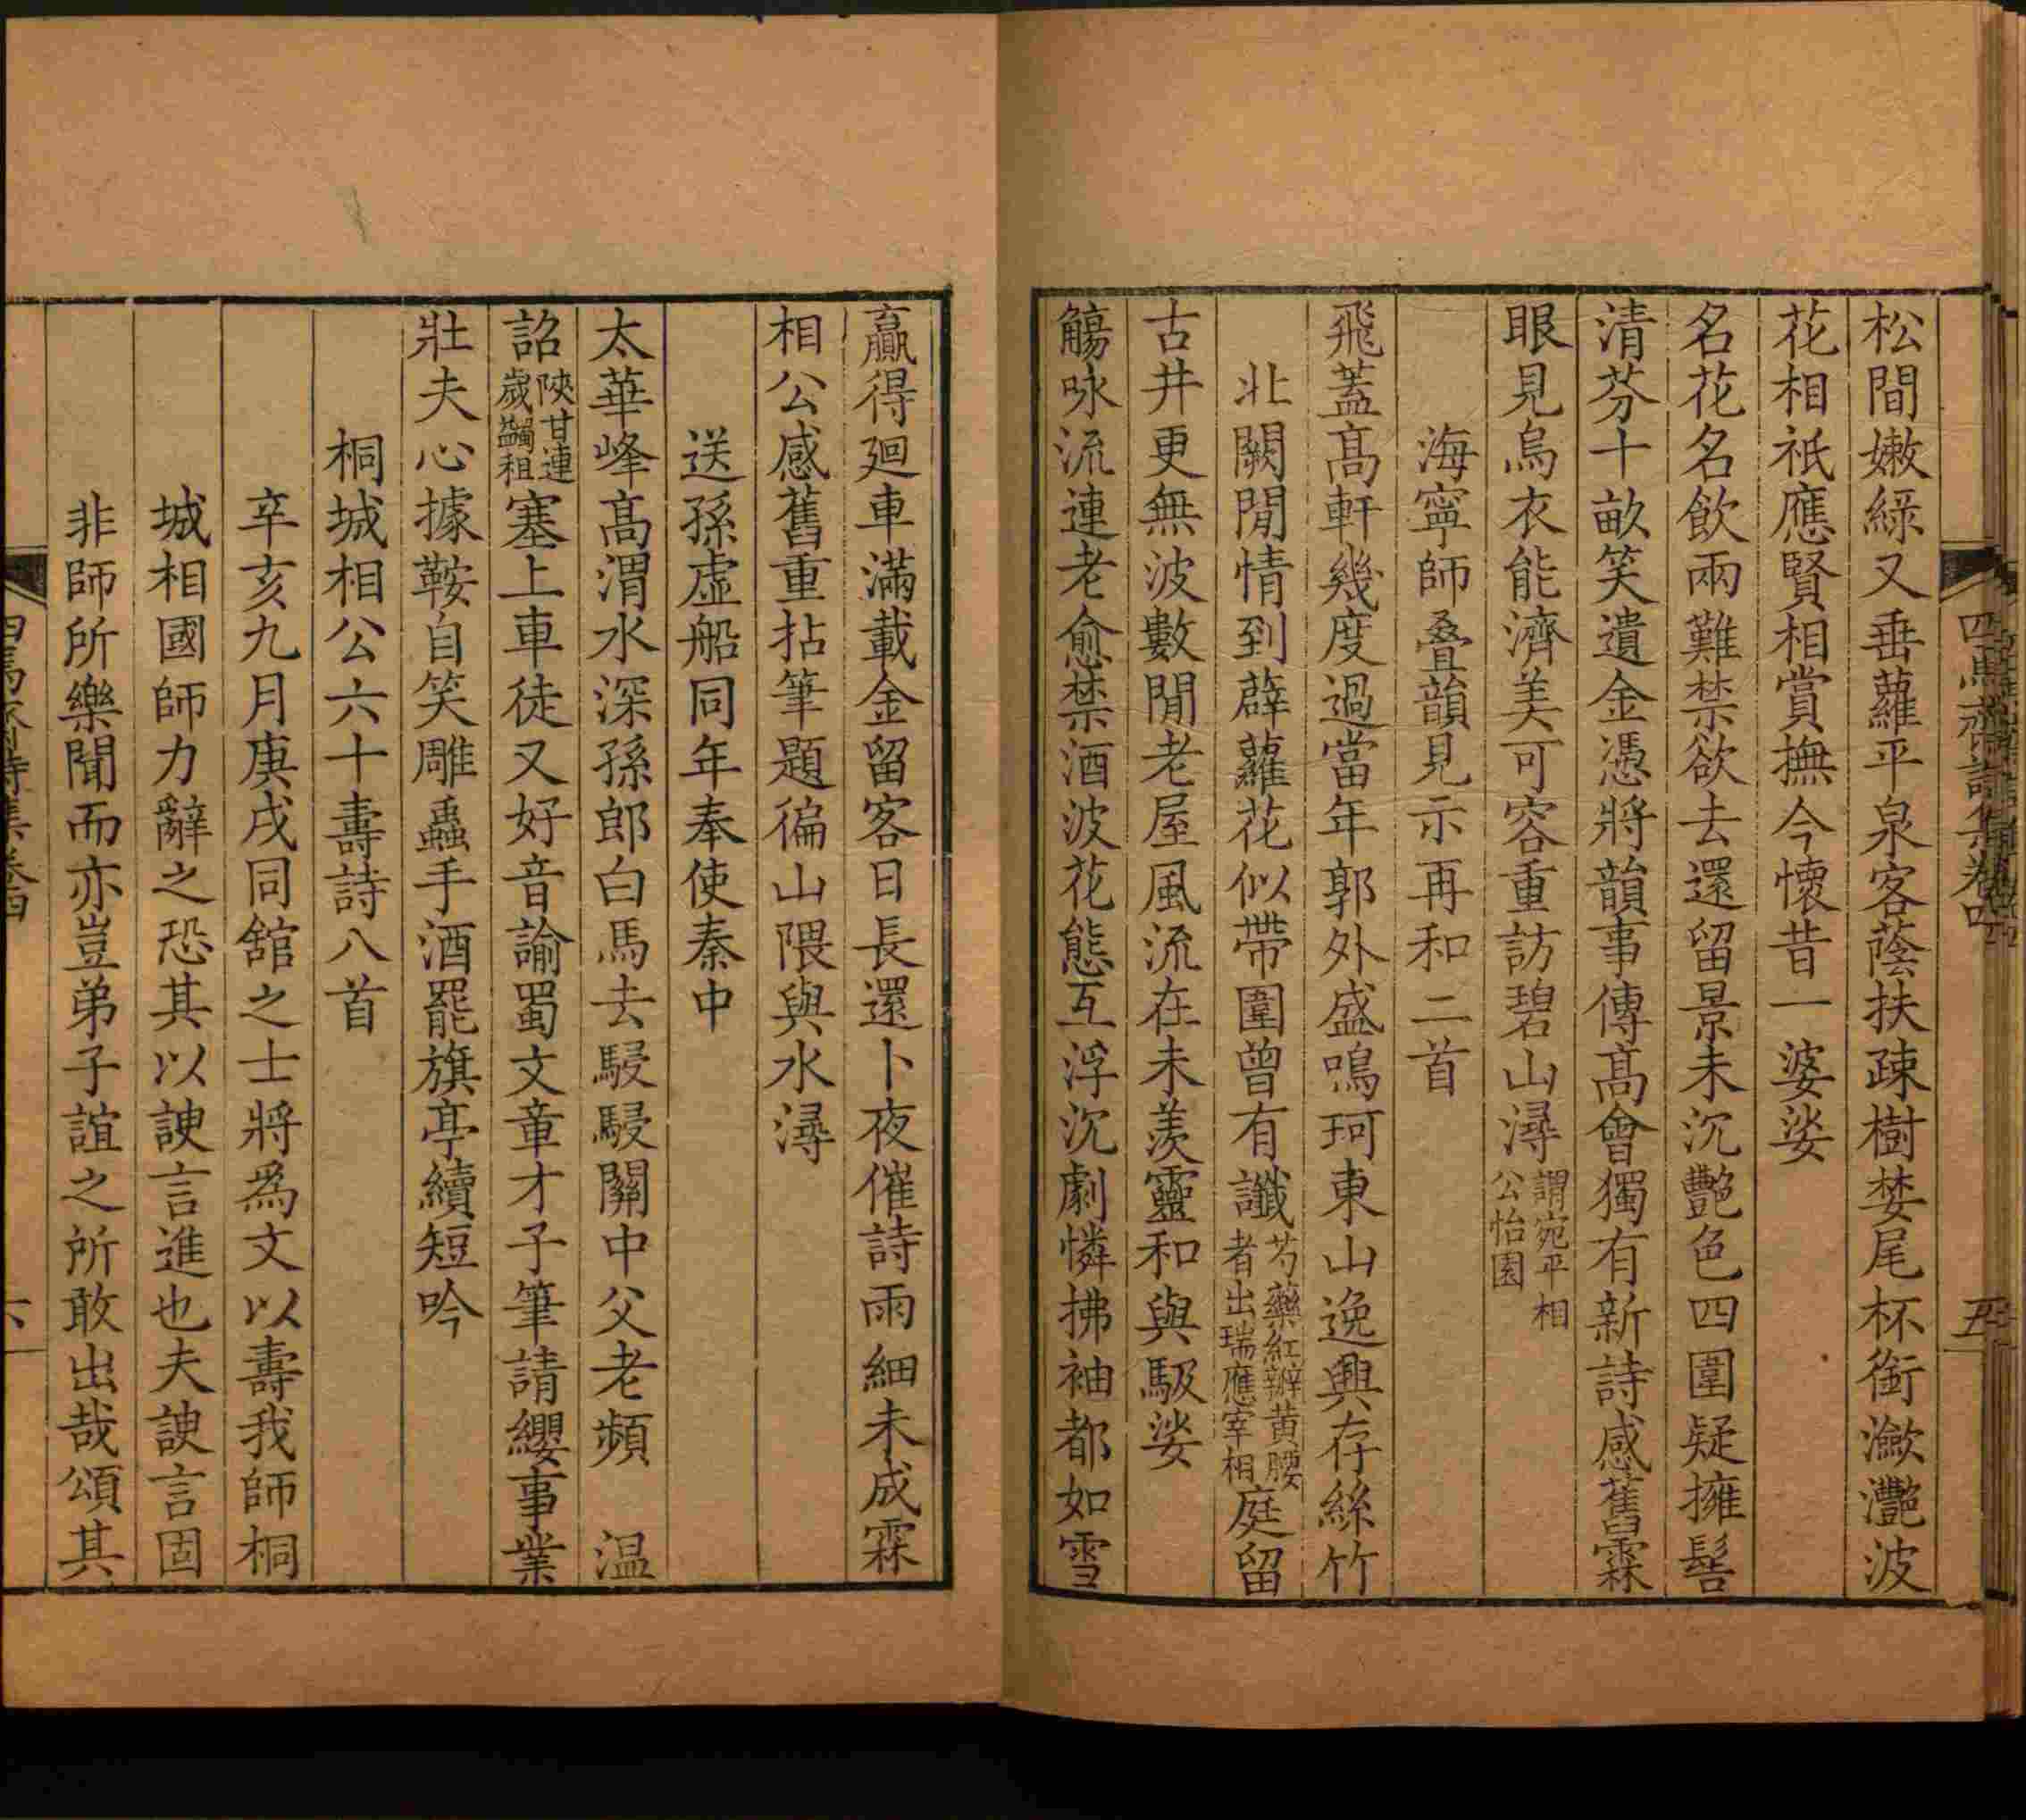 松間嫩綠又垂蘿平泉客蔭扶疎樹婪尾杯銜瀲灧波
花相祇應賢相賞撫今懷昔一婆娑
名花名飲兩難禁欲去還留景未沉艷色四圍疑擁髻
清芬十畝笑遺金憑將韻事傳高會獨有新詩感舊霖
眼見烏衣能濟美可容重訪碧山潯謂宛平相公怡園
海寧師叠韻見示再和二首
飛蓋高軒幾度過當年郭外盛鳴珂東山逸興存絲竹
北闕閒情到薜蘿花似帶圍曾有讖芍藥紅瓣黃腰者出瑞應宰相庭留
古井更無波數間老屋風流在未羨靈和與馺娑
觴咏流連老愈禁酒波花態互浮沉劇憐拂袖都如雪
贏得廻車滿載金留客日長還卜夜催詩雨細未成霖
相公感舊重拈筆題徧山隈與水潯
送孫虛船同年奉使秦中
太華峰高渭水深孫郎白馬去駸駸關中父老頻 温
詔陝甘連歲蠲租塞上車徒又好音諭蜀文章才子筆請纓事業
壯夫心據鞍自笑雕蟲手酒罷旗亭續短吟
桐城相公六十壽詩八首
辛亥九月庚戌同舘之士將爲文以壽我師桐
城相國師力辭之恐其以諛言進也夫諛言固
非師所樂聞而亦豈弟子誼之所敢出哉頌其